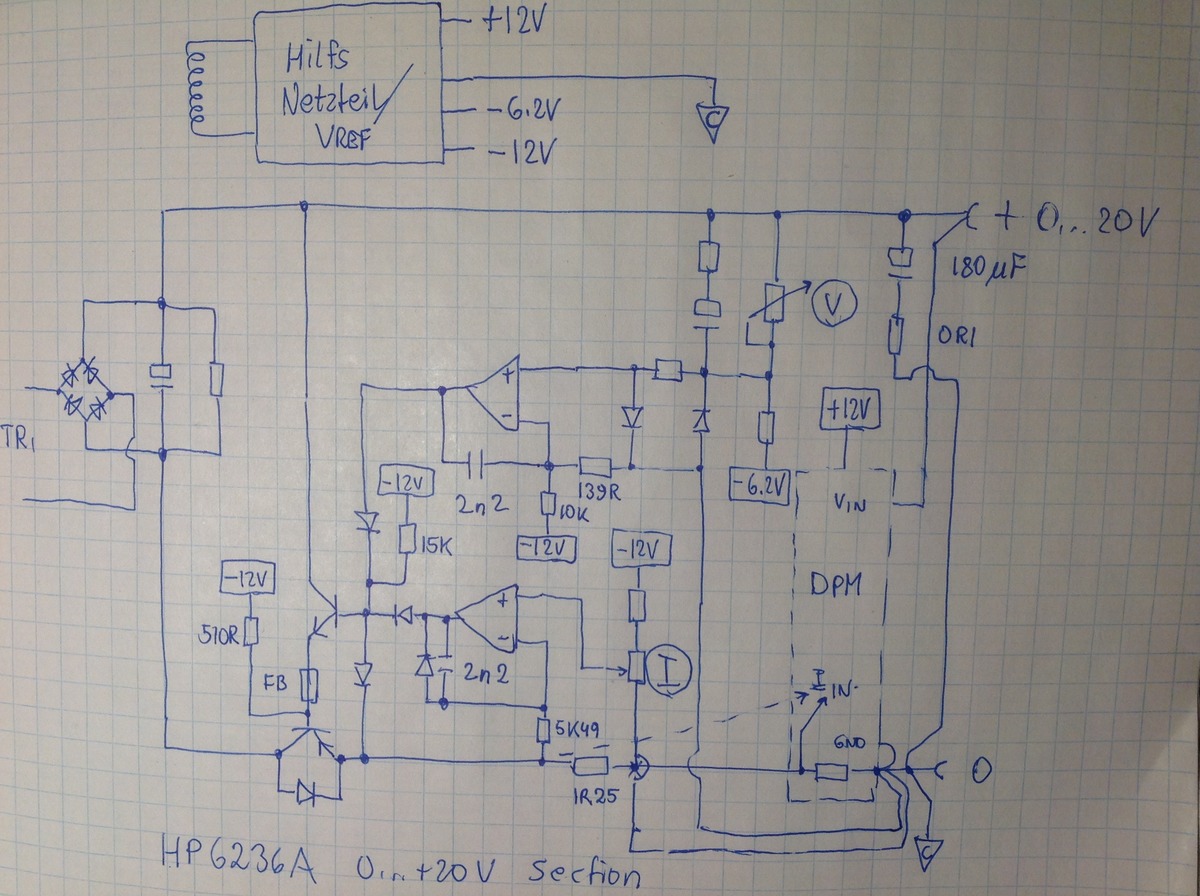 Hilfs
Netzteil/
VREF
+12V
-6.2V
-12V
C
+ 0...20V
180µF
V
0R1
+12V
TR1
+
-
-12V
2n2
139R
10K
-12V
-6.2V
VIN
15K
-12V
DPM
-12V
510R
+
-
I
FB
2n2
IN-
5K49
GND
1R25
0
C
HP6236A 0...+20V Section